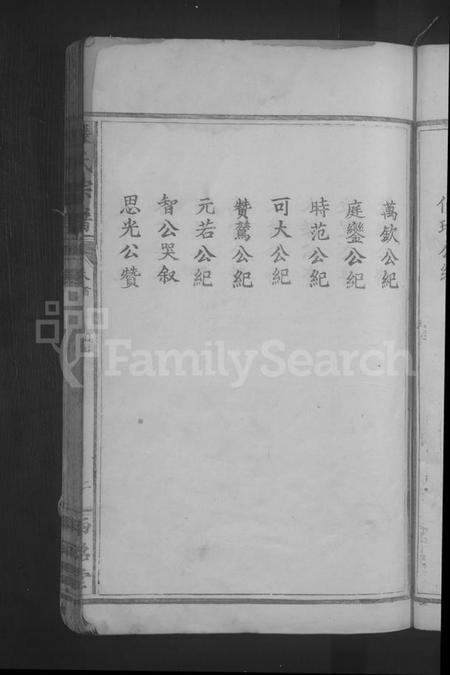 萬欽公紀
庭鑾公紀
時范公紀
可大公紀
贊鷟公紀
元若公紀
智公哭叙
思光公贊
FamilySearch